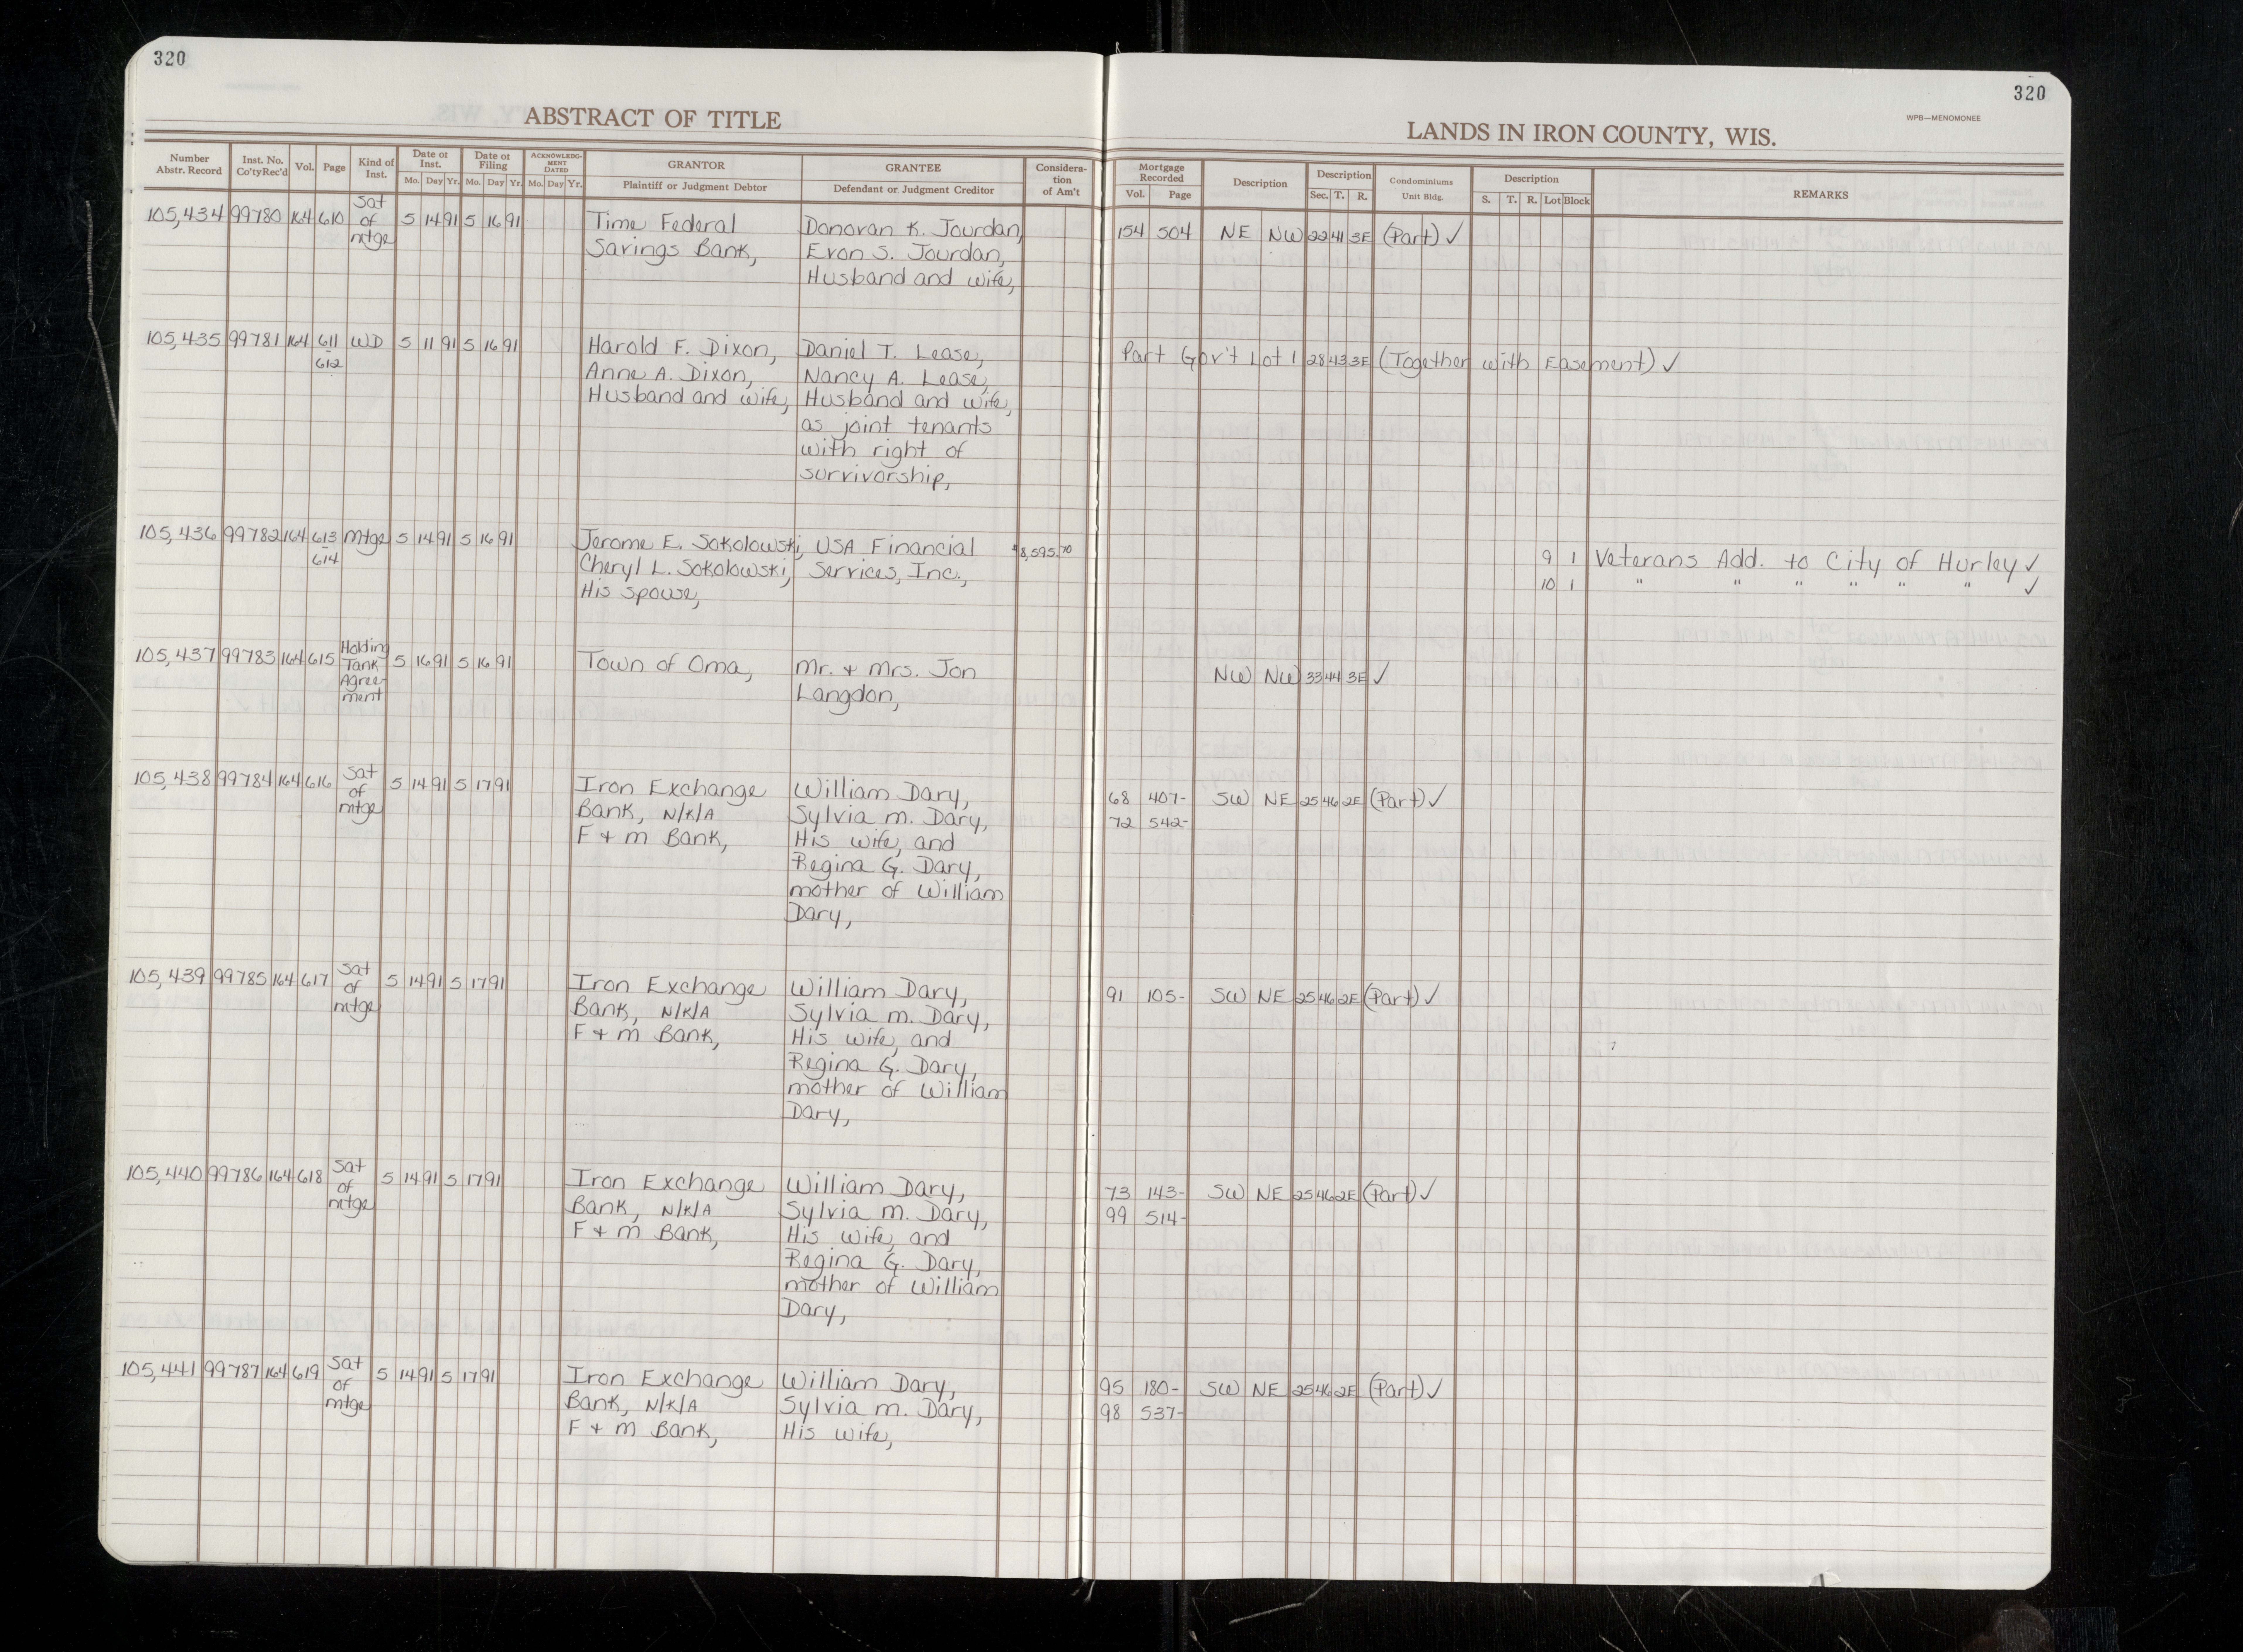 320
320
ABSTRACT OF TITLE
LANDS IN IRON COUNTY, WIS.
WPB—MENOMONEE
Number Abstr. Record
Inst. No. Co'ty Rec'd
Vol.
Page
Kind of Inst.
Date of Inst.
Mo. Day Yr.
Date of Filing
Mo. Day Yr.
ACKNOWLEDGMENT DATED
Mo. Day Yr.
GRANTOR
Plaintiff or Judgment Debtor
GRANTEE
Defendant or Judgment Creditor
Consideration of Am't
Mortgage Recorded
Vol. Page
Description
Description
Sec. T. R.
Condominiums
Unit Bldg.
Description
S. T. R. Lot Block
REMARKS
105,434 99780 164 610 Sat of mtge 5 14 91 5 16 91 Time Federal Donovan K. Jourdan, 154 504 NE NW 22 41 3E (Part) ✓
Savings Bank, Evon S. Jourdan,
Husband and wife,
105,435 99781 164 611-612 WD 5 11 91 5 16 91 Harold F. Dixon, Daniel T. Lease, Part Gov't Lot 1 28 43 3E (Together with Easement) ✓
Anne A. Dixon, Nancy A. Lease,
Husband and wife, Husband and wife,
as joint tenants
with right of
survivorship,
105,436 99782 164 613-614 mtge 5 14 91 5 16 91 Jerome E. Sokolowski, USA Financial $8,595.70 9 1 Veterans Add. to City of Hurley ✓
Cheryl L. Sokolowski, Services, Inc., 10 1 " " " " " " ✓
His spouse,
105,437 99783 164 615 Holding Tank Agree-ment 5 16 91 5 16 91 Town of Oma, Mr. + Mrs. Jon NW NW 33 44 3E ✓
Langdon,
105,438 99784 164 616 Sat of mtge 5 14 91 5 17 91 Iron Exchange William Dary, 68 407- SW NE 25 46 2E (Part) ✓
Bank, N/K/A Sylvia M. Dary, 72 542-
F + M Bank, His wife, and
Regina G. Dary,
mother of William
Dary,
105,439 99785 164 617 Sat of mtge 5 14 91 5 17 91 Iron Exchange William Dary, 91 105- SW NE 25 46 2E (Part) ✓
Bank, N/K/A Sylvia M. Dary,
F + M Bank, His wife, and
Regina G. Dary,
mother of William
Dary,
105,440 99786 164 618 Sat of mtge 5 14 91 5 17 91 Iron Exchange William Dary, 73 143- SW NE 25 46 2E (Part) ✓
Bank, N/K/A Sylvia M. Dary, 99 514-
F + M Bank, His wife, and
Regina G. Dary,
mother of William
Dary,
105,441 99787 164 619 Sat of mtge 5 14 91 5 17 91 Iron Exchange William Dary, 95 180- SW NE 25 46 2E (Part) ✓
Bank, N/K/A Sylvia M. Dary, 98 537-
F + M Bank, His wife,